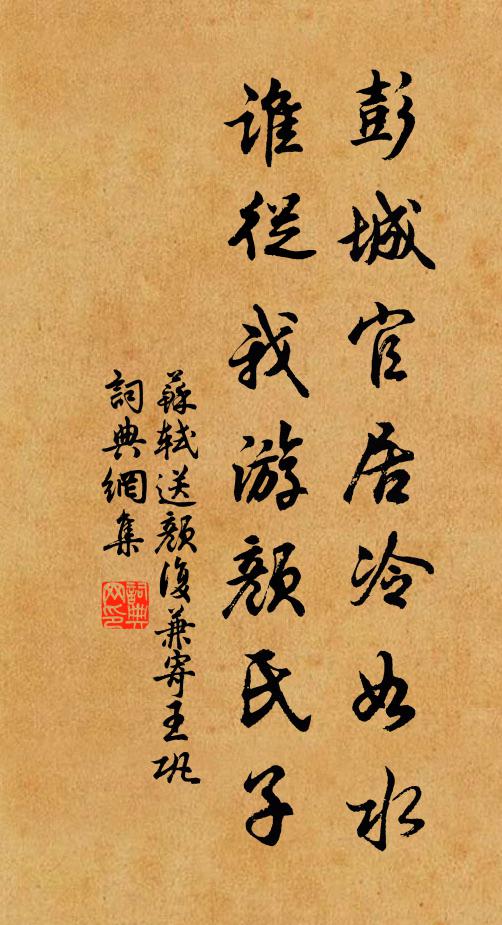 彭城官居冷如水
谁從我游顏氏子
蘇軾送顏復兼寄王鞏
詞典網集
詞典网印